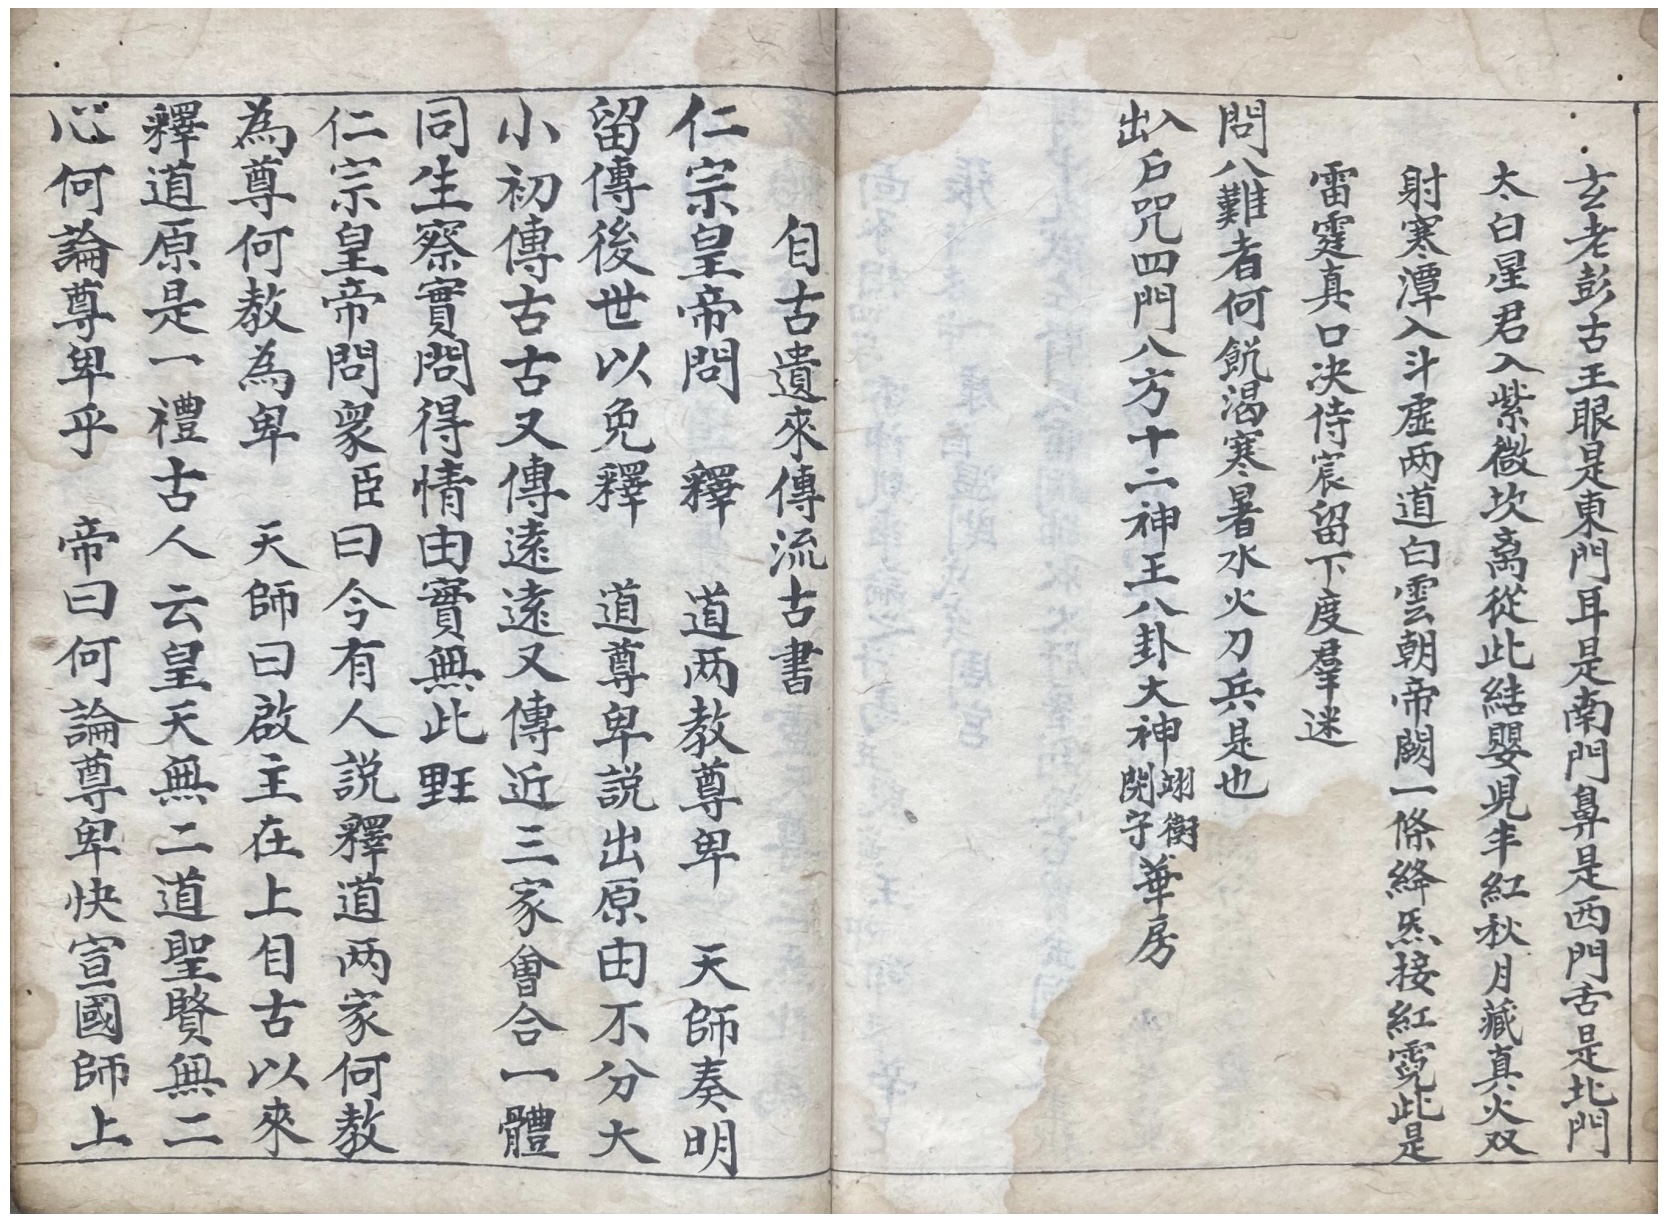 玄老彭古王眼是東門耳是南門鼻是西門舌是北門
太白星君入紫微坎离從此結嬰児半紅秋月藏真火双
射寒潭入斗虛两道白雲朝帝闕一條絳炁接紅霓此是
雷霆真口决侍宸留下度羣迷
問八難者何飢渴寒暑水火刀兵是也
出入户咒四門八方十二神王八卦大神開子翊衛華房
自古遺來傳流古書
仁宗皇帝問 釋 道两教尊卑 天師奏明
留傳後世以免釋 道尊卑説出原由不分大
小初傳古古又傳遠遠又傳近三家會合一體
同生察實問得情由實無此
仁宗皇帝問衆臣曰今有人説釋道两家何教
為尊何教為卑 天師曰啟主在上自古以來
釋道原是一禮古人云皇天無二道聖賢無二
心何論尊卑乎 帝曰何論尊卑快宣國師上